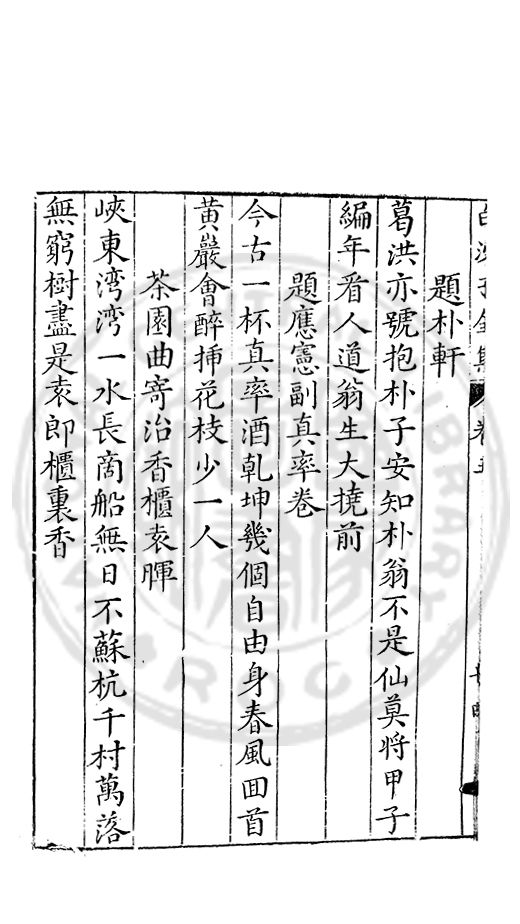 題朴軒
葛洪亦號抱朴子安知朴翁不是仙莫將甲子
編年看人道翁生大撓前
題應憲副真率卷
今古一杯真率酒乾坤幾個自由身春風囬首
黄巖會醉揷花枝少一人
茶園曲寄治香櫃袁暉
峽東湾湾一水長啇船無日不蘇杭千村萬落
無窮樹盡是袁郎櫃裏香